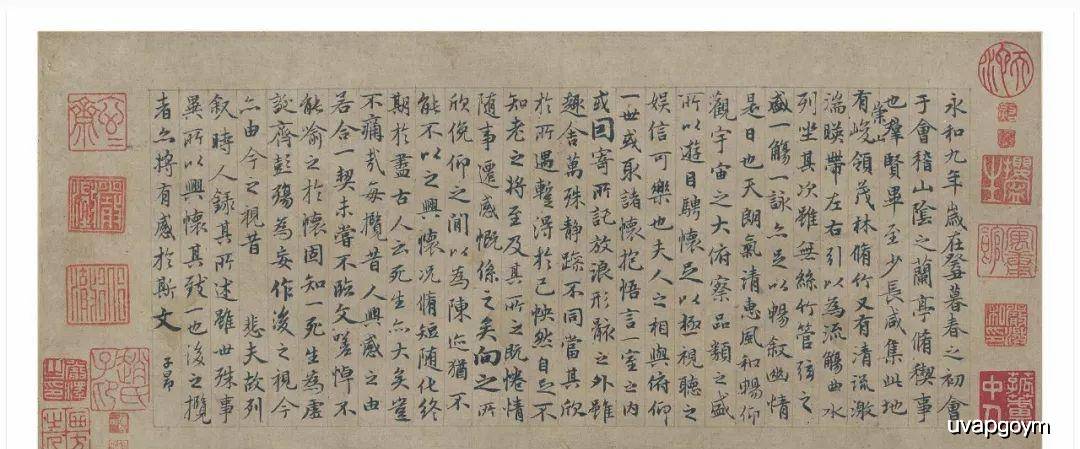 永和九年歲在癸暮春之初會
于會稽山陰之蘭亭脩禊事
也羣賢畢至少長咸集此地
有崇山峻領茂林脩竹又有清流激
湍暎帶左右引以為流觴曲水
列坐其次雖無絲竹管弦之
盛一觴一詠亦足以暢敘幽情
是日也天朗氣清惠風和暢仰
觀宇宙之大俯察品類之盛
所以遊目騁懷足以極視聽之
娛信可樂也夫人之相與俯仰
一世或取諸懷抱悟言一室之內
或因寄所託放浪形骸之外雖
趣舍萬殊静躁不同當其欣
於所遇蹔得於己怏然自足不
知老之將至及其所之既惓情
隨事遷感慨係之矣向之所
欣俛仰之間以為陳迹猶不
能不以之興懷況脩短随化終
期於盡古人云死生亦大矣豈
不痛哉每攬昔人興感之由
若合一契未嘗不臨文嗟悼不
能喻之於懷固知一死生為虛
誕齊彭殤為妄作後之視今
亦由今之視昔 悲夫故列
敘時人録其所述雖世殊事
異所以興懷其致一也後之攬
者亦將有感於斯文
子昂
uvapgoym